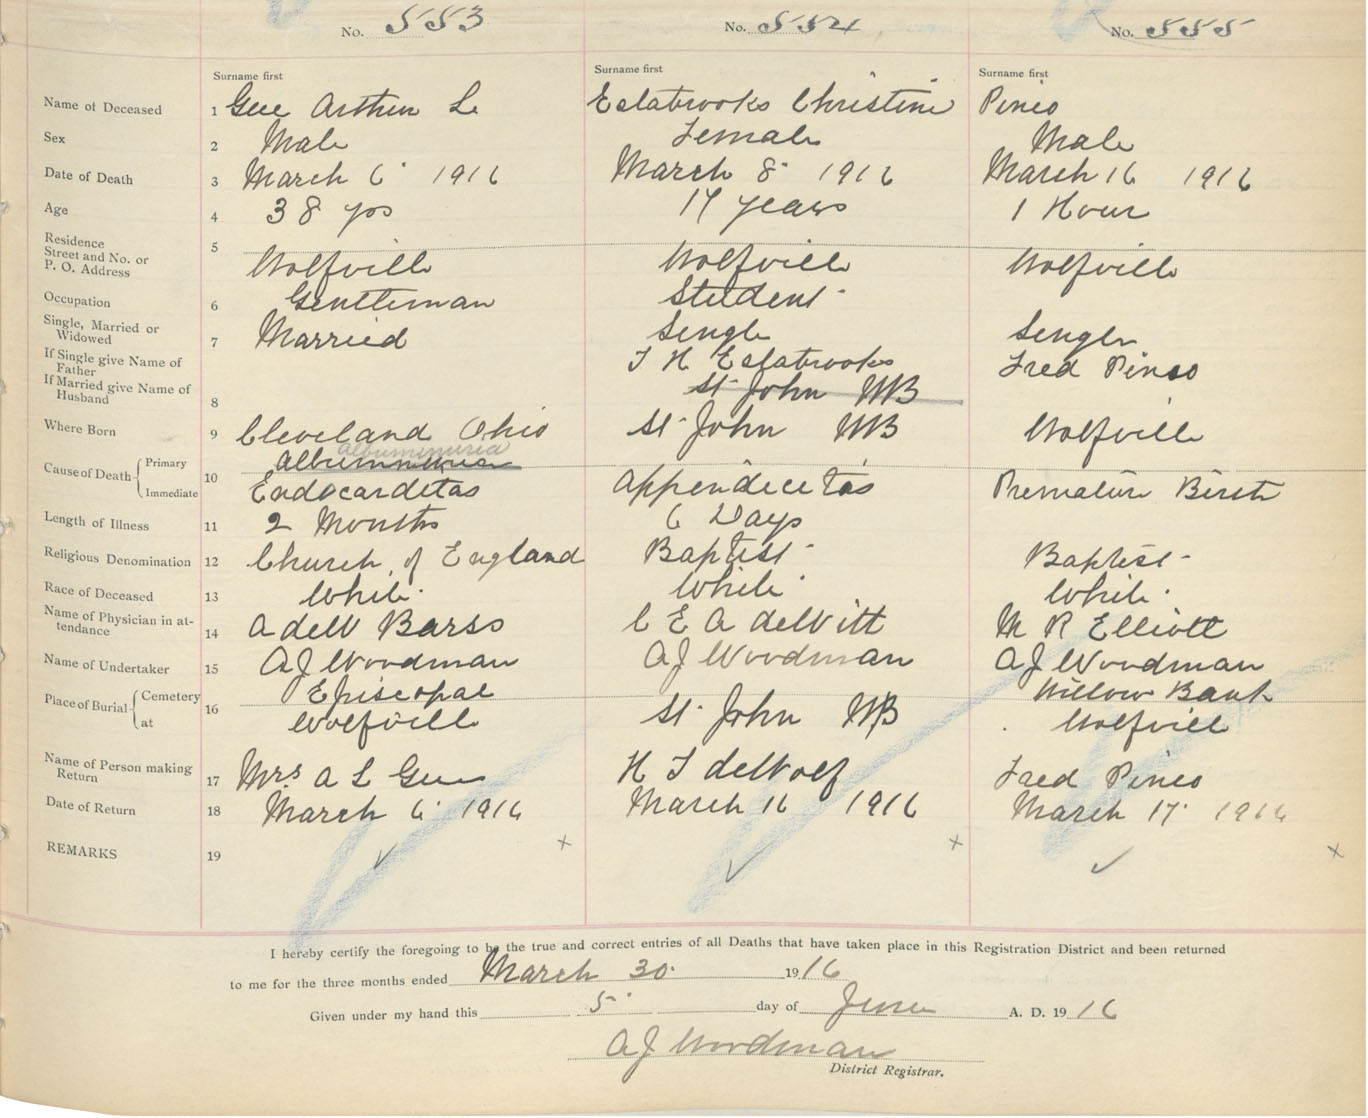 No. 553 No. 554 No. 555
Surname first Surname first Surname first
Name of Deceased 1 Gue Arthur L. Estabrooks Christine Pineo
Sex 2 Male Female Male
Date of Death 3 March 6 1916 March 8 1916 March 16 1916
Age 4 38 yrs 17 years 1 Hour
Residence
Street and No. or
P. O. Address 5 Wolfville Wolfville Wolfville
Occupation 6 Gentleman Student
Single, Married or
Widowed 7 Married Single Single
If Single give Name of
Father T H Estabrooks Fred Pineo
If Married give Name of
Husband 8 St John NB
Where Born 9 Cleveland Ohio St John NB Wolfville
albuminuria
Cause of Death Primary 10 albuminuria
Immediate Endocarditas Appendicetas Premature Birth
Length of Illness 11 2 Months 6 Days
Religious Denomination 12 Church of England Baptist Baptist
Race of Deceased 13 White White White
Name of Physician in at-
tendance 14 A deW Barss C E A deWitt M R Elliott
Name of Undertaker 15 A J Woodman A J Woodman A J Woodman
Place of Burial Cemetery 16 Episcopal Willow Bank
at Wolfville St John NB Wolfville
Name of Person making
Return 17 Mrs A L Gue H T deWolf Fred Pineo
Date of Return 18 March 6 1916 March 16 1916 March 17 1916
REMARKS 19
I hereby certify the foregoing to be the true and correct entries of all Deaths that have taken place in this Registration District and been returned
to me for the three months ended March 30 1916
Given under my hand this 5 day of June A. D. 1916
A J Woodman
District Registrar.